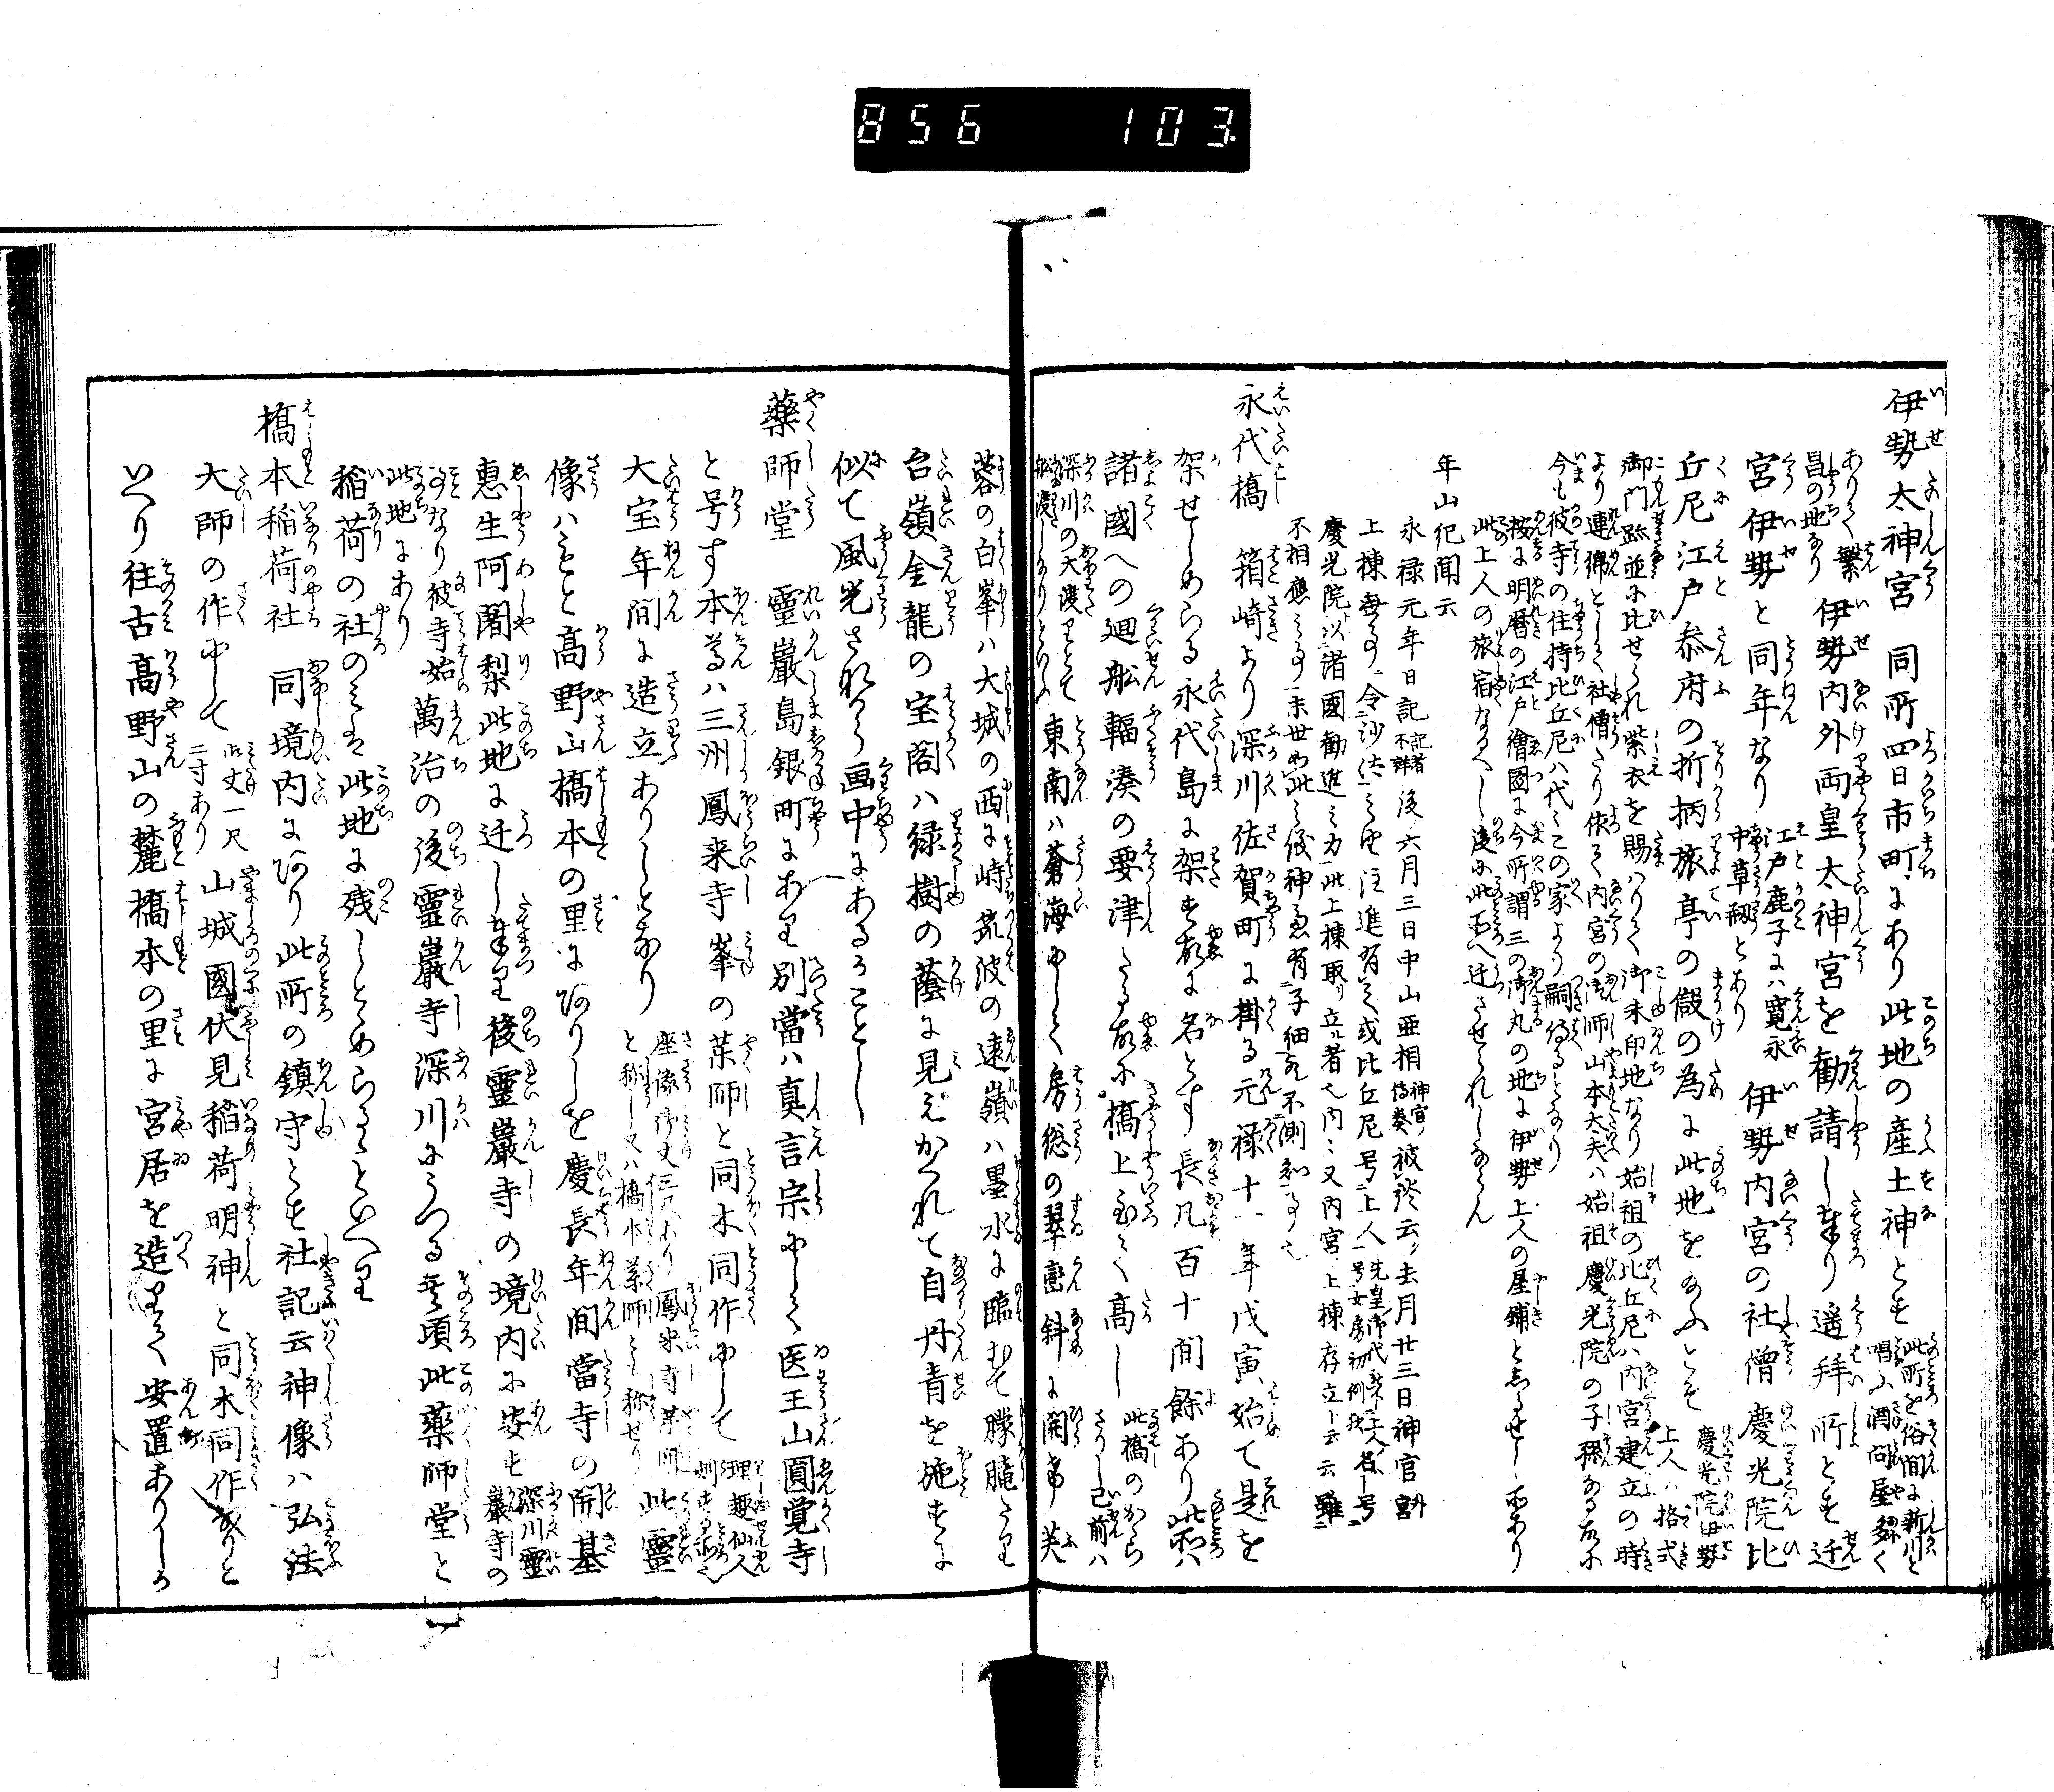 856 103
伊勢太神宮 同所四日市町にあり此地の産土神とす 此所を俗間に新川と
唱ふ酒問屋多く
ありて繁
昌の地なり 伊勢内外両皇太神宮を勧請し奉り遥拝所とす 迁
宮伊勢と同年なり 江戸鹿子には寛永
中草創とあり 伊勢内宮の社僧慶光院比
丘尼江戸参府の折柄旅亭の儲の為に此地をたまふとそ 慶光院伊勢
上人は格式
御門跡並に比せられ紫衣を賜はりて御朱印地なり始祖の比丘尼は内宮建立の時
より連綿として社僧たり依て内宮の御師山本太夫は始祖慶光院の子孫なる故に
今も彼寺の住持比丘尼は代々この家より嗣侍るとなり
按に明暦の江戸繪圖に今所謂三の御丸の地に伊勢上人の屋鋪としるせし所あり
此上人の旅宿なるへし後に此所へ迁させられしならん
年山紀聞云
永禄元年日記 記者
不詳 後六月三日中山亜相 神宮
傳奏 被談云去月廿三日神宮 外
宮
上棟毎事令沙汰之由注進有之或比丘尼号上人
慶光院以諸國勧進之力此上棟取立者也内々又内宮上棟存立云云雖
不相應之事末世如此之儀神慮有子細乎不測知事也
永代橋 箱崎より深川佐賀町に掛る元禄十一年戊寅始て是を
架せしめらる永代島に架す故に名とす長凡百十間餘あり此所は
諸國への廻船輻湊の要津たる故に橋上至て高し 此橋のかゝら
さりし已前は
深川の大渡りとて
船渡しなりとい 東南は蒼海にして房総の翠巒斜に開け芙
蓉の白峯は大城の西に峙 筑波の遠嶺は墨水に臨むて朦朧たり
台嶺金龍の宝閣は緑樹の蔭に見えかくれて自丹青を施すに
似て風光さなから画中にあるかことし
藥師堂 靈巖島銀町にあり別當は真言宗にして医王山圓覚寺
と号す本尊は三州鳳来寺峯の薬師と同木同作にして 理趣仙人
大宝年間に造立ありしとなり 座像御丈三尺あり鳳来寺薬師
と称し又は橋本薬師とも称せり 此靈
像はもと高野山橋本の里にありしを慶長年間當寺の開基
恵生阿闍梨此地に迁し奉り後靈巖寺の境内に安す 深川靈
巖寺の
事なり彼寺始
此地にあり 萬治の後靈巖寺深川にうつる其頃此藥師堂と
稲荷の社のみは此地に残しとめらるゝといへり
橋本稲荷社 同境内にあり此所の鎮守とす社記云神像は弘法
大師の作にして 御丈一尺
二寸あり 山城國伏見稲荷明神と同木同作なりと
いへり往古高野山の麓橋本の里に宮居を造りて安置ありしか